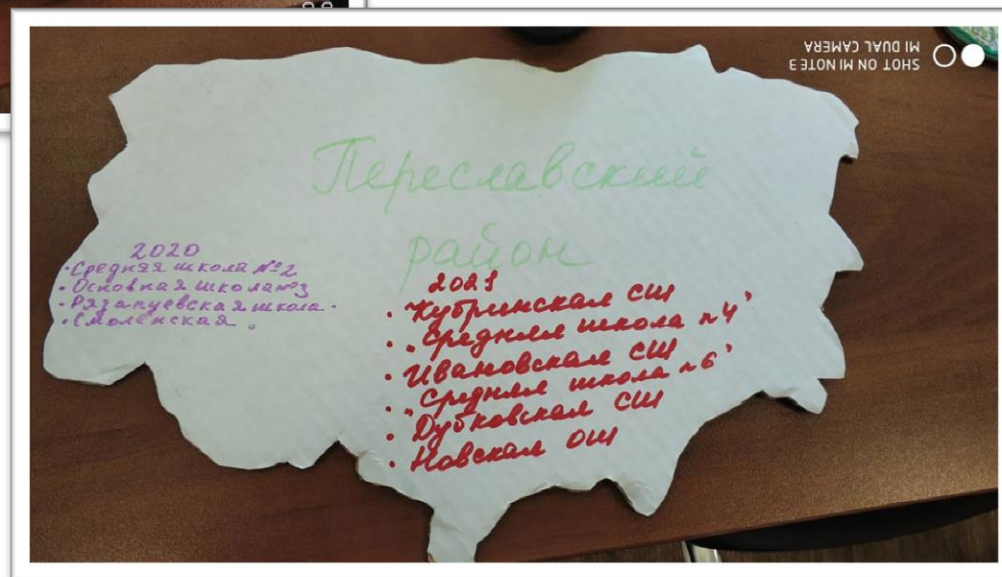 SHOT ON MI NOTE 3
MI DUAL CAMERA
Переславский
район
2020
• Средняя школа №2
• Основная школа №3
• Рязанцевская школа.
• Смоленская.
2021
• Кубринская СШ
• „Средняя школа №4"
• Ивановская СШ
• „Средняя школа №6"
• Дубковская СШ
• Новская ОШ